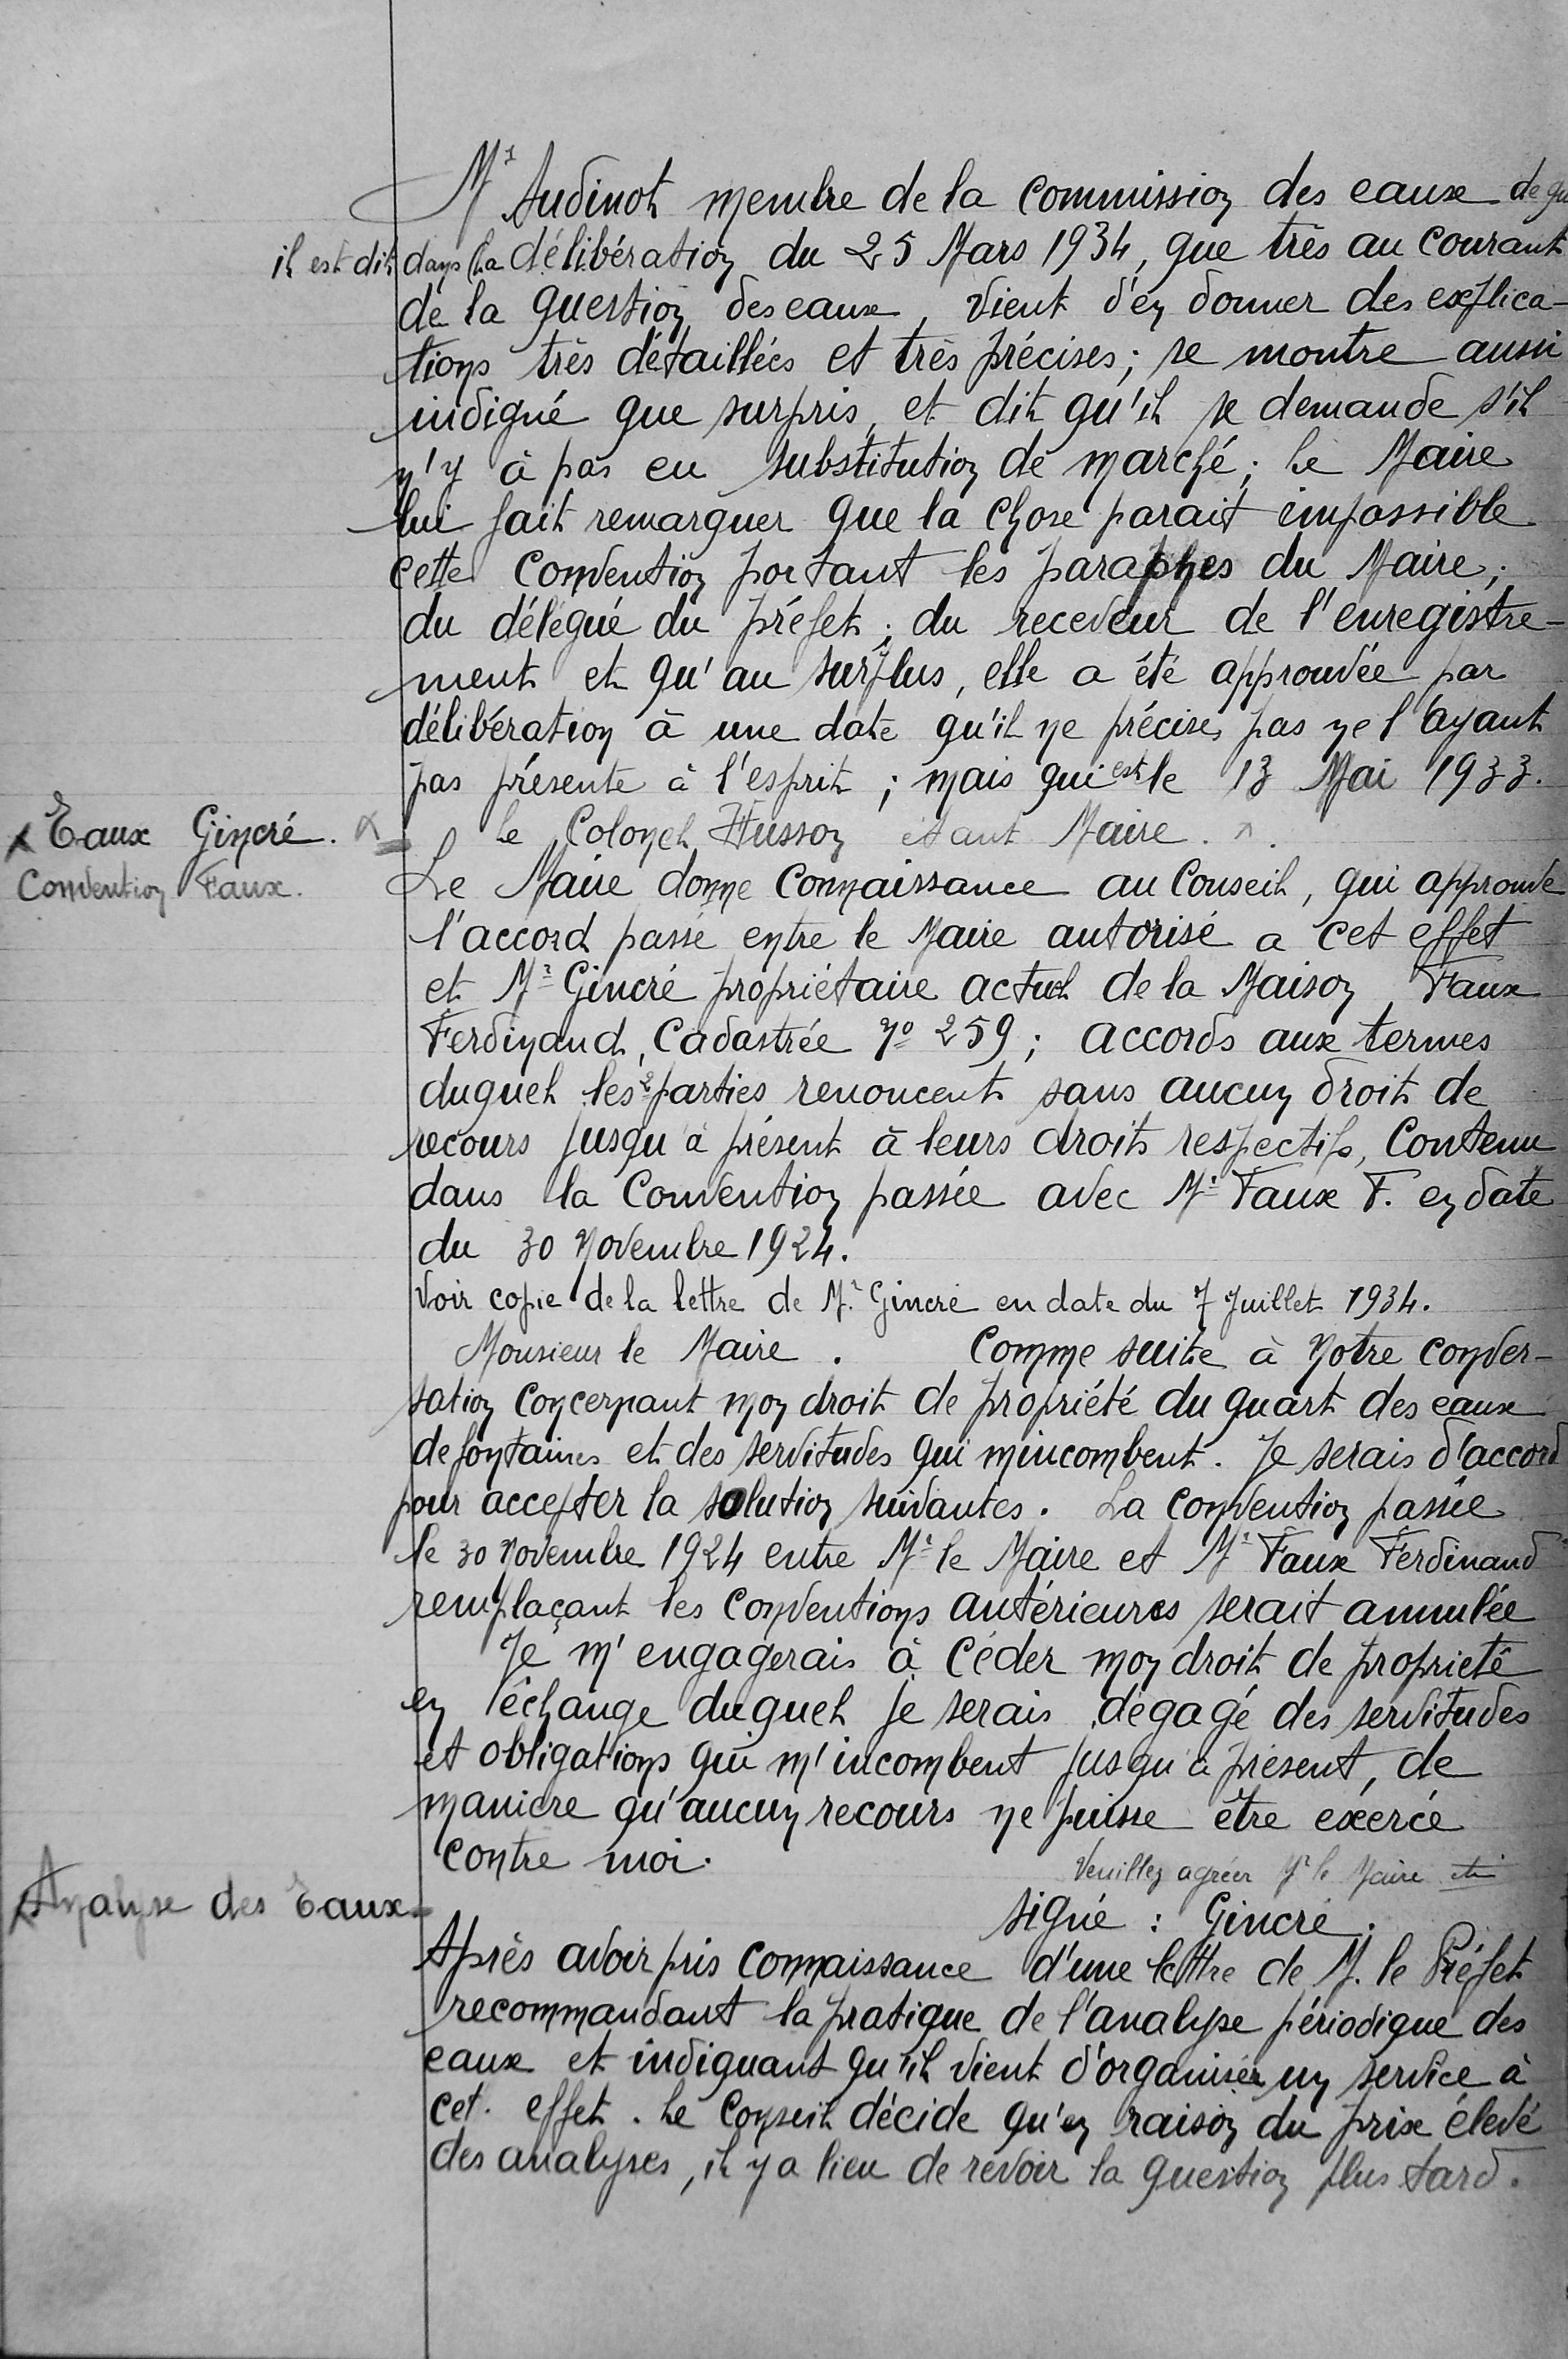 Mr Audinot membre de la commission des eaux de qu
il est dit dans la délibération du 25 Mars 1934, que très au courant
de la question des eaux, vient d'en donner des explica-
tions très détaillées et très précises; se montre aussi
indigné que surpris, et dit qu'il se demande s'il
n'y à pas eu substitution de marché; Le Maire
lui fait remarquer que la chose parait impossible
cette convention portant les paraphes du Maire;
du délégué du préfet; du receveur de l'enregistre-
ment et qu'au surplus, elle a été approuvée par
délibération à une date qu'il ne précise pas ne l'ayant
pas présente à l'esprit; mais qui est le 13 Mai 1933.
le Colonel Husson étant Maire.
Eaux Gincré.
Convention Faux.
Le Maire donne connaissance au Conseil, qui approuve
l'accord passé entre le Maire autorisé a cet effet
et Mr Gincré propriétaire actuel de la Maison Faux
Ferdinand, Cadastrée No 259; accords aux termes
duquel les 2 parties renoncent sans aucun droit de
recours jusqu'à présent à leurs droits respectifs, Contenu
dans la Convention passée avec Mr Faux F. en date
du 30 Novembre 1924.
Voir copie de la lettre de Mr Gincré en date du 7 Juillet 1934.
Monsieur le Maire. Comme suite à Notre conver-
sation concernant mon droit de propriété du quart des eaux
de fontaines et des servitudes qui m'incombent. Je serais d'accord
pour accepter la solution suivantes. La convention passée
le 30 Novembre 1924 entre Mr le Maire et Mr Faux Ferdinand
remplaçant les conventions antérieures serait annulée
Je m'engagerais à Céder mon droit de propriété
en échange duquel je serais dégagé des servitudes
et obligations qui m'incombent jusqu'à présent, de
manière qu'aucun recours ne puisse être exercé
contre moi.
Veuillez agréer Mr le Maire etc
signé : Gincré.
Analyse des Eaux
Après avoir pris connaissance d'une lettre de M. le Préfet
recommandant la pratique de l'analyse périodique des
eaux et indiquant qu'il vient d'organiser un service à
cet effet. Le Conseil décide qu'en raison du prix élevé
des analyses, il y a lieu de revoir la question plus tard.